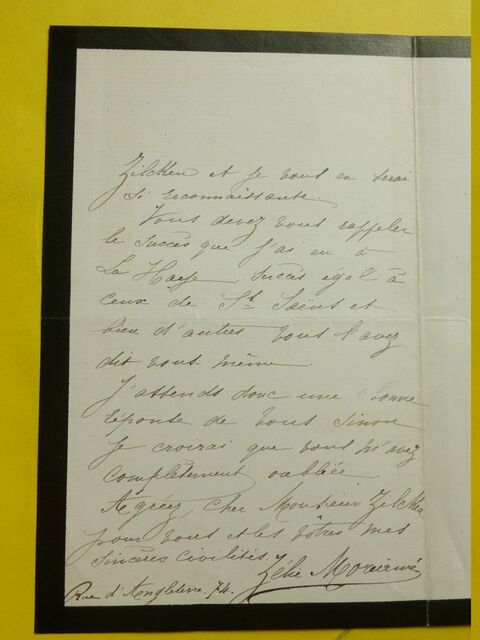 Zilcken et je vous en serai
si reconnaissante.
Vous devez vous rappeler
le succès que j'ai eu à
La Haye, succès égal à
ceux de St Saëns et
bien d'autres vous l'avez
dit vous même.
J'attends donc une bonne
réponse de vous sinon
je croirai que vous m'avez
complètement oubliée.
Agréez, cher Monsieur Zilcken
pour vous et les vôtres mes
sincères civilités.
Zélie Moriamé
Rue d'Angleterre. 74.